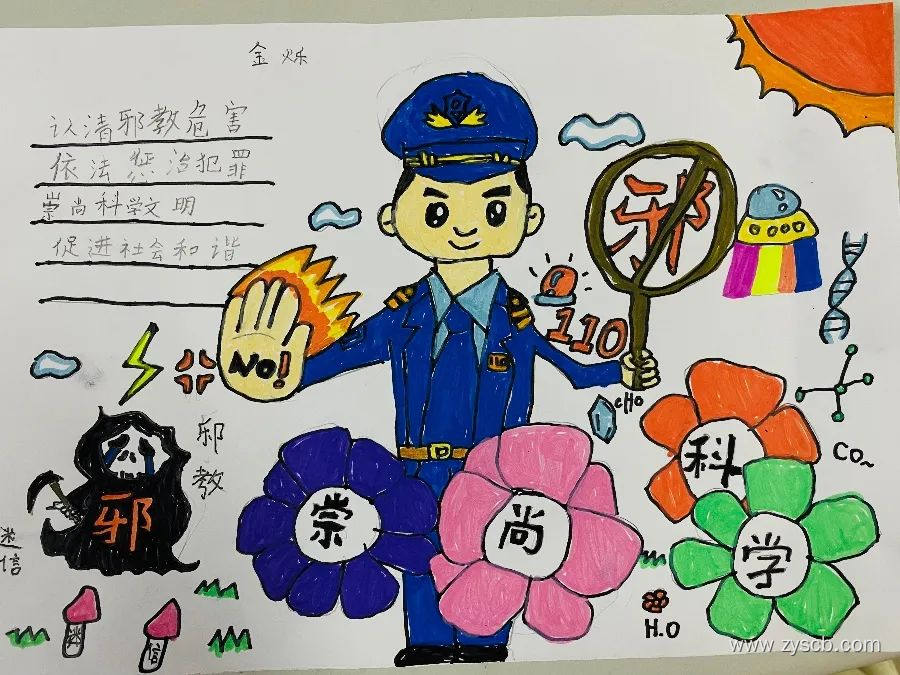 金烁
认清邪教危害
依法惩治犯罪
崇尚科学文明
促进社会和谐
邪
110
NO!
CHO
科
CO~
邪教
邪
崇
尚
学
迷信
迷
信
H.O
www.zyscb.com